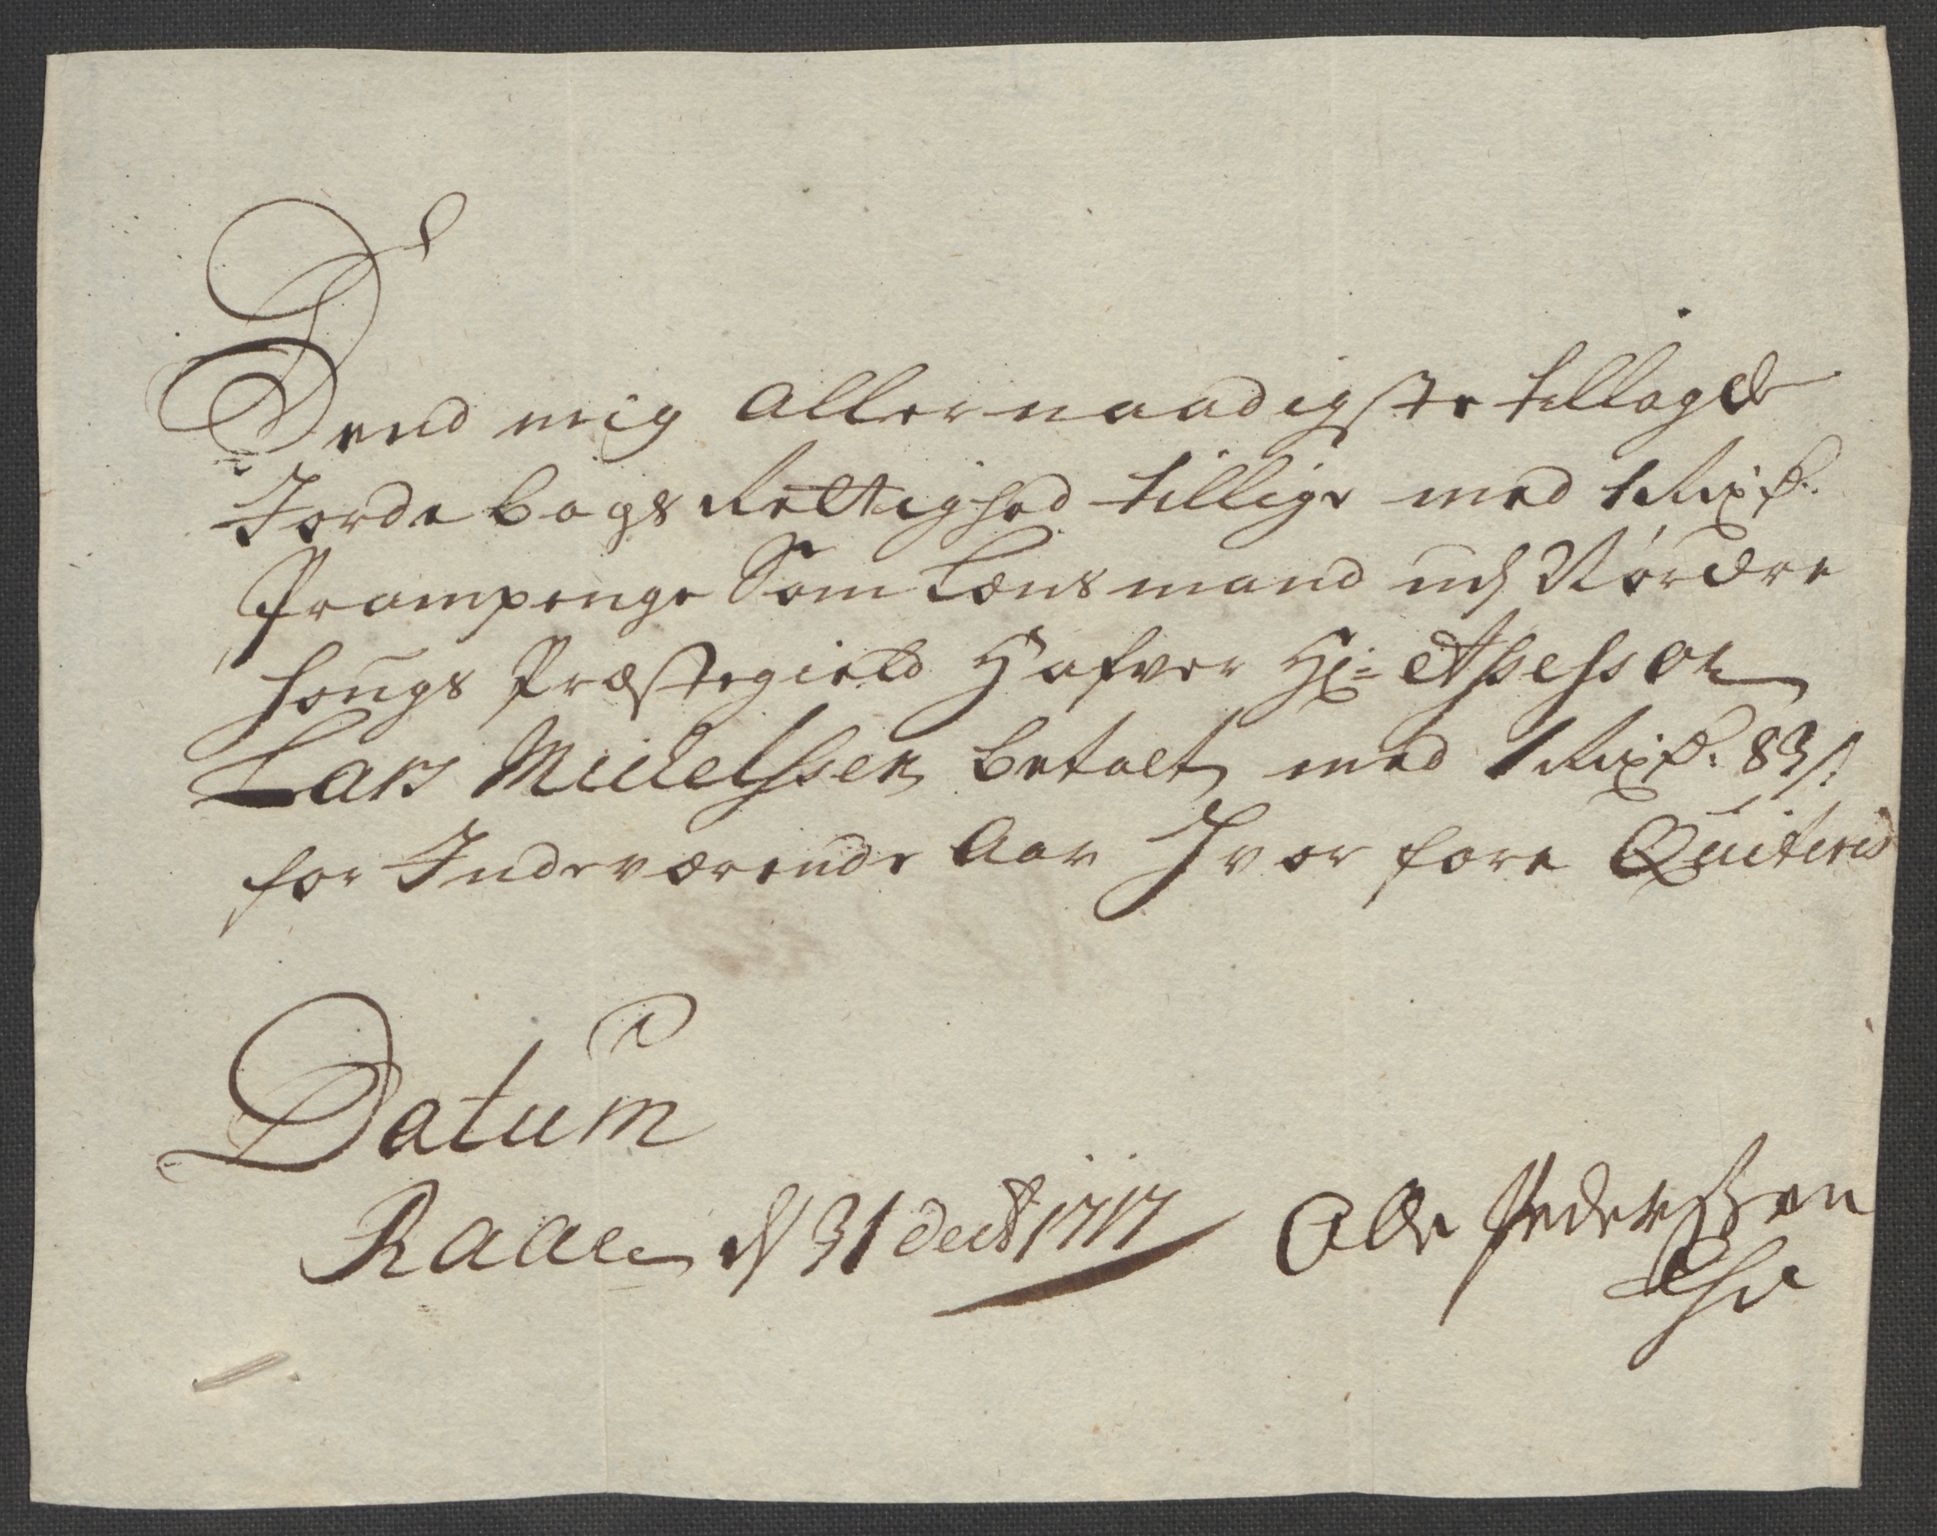 Dend mig Allernaadigste tillagde
Jordebogs Rettighed tillige med 1 Rixd.
Prampenge Som Lænsmand udj Nordre
hougs Præstegield Hafver Hr: Assessor
Lars Michelssen betalt med 1 Rixd. 83 s:
for Indeværende Aar Hvorfore Quiteris
Datum
Raaen d 31 decbr 1717
Olle Pederssen